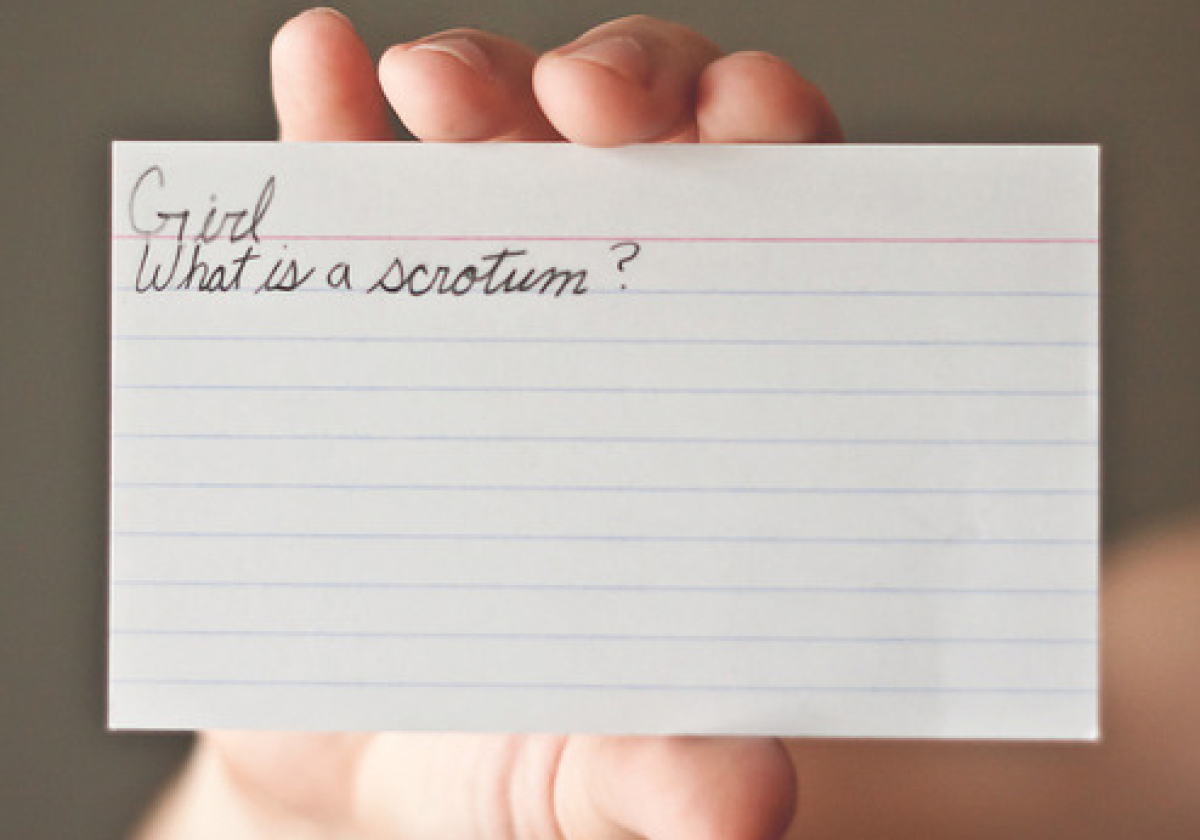 Girl
What is a scrotum?